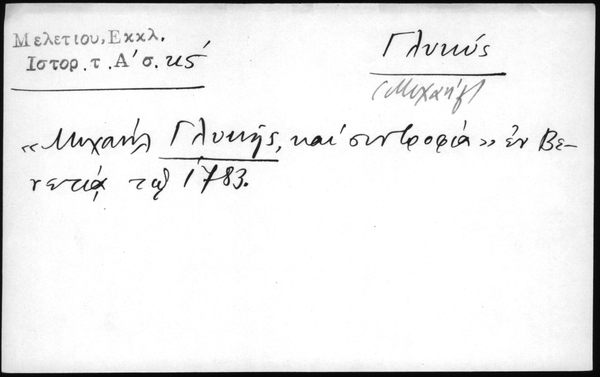 Μελετίου, Εκκλ.
Ιστορ. τ. Α' σ. κς'
Γλυκύς
(Μιχαήλ)
«Μιχαήλ Γλυκής, καί συντροφιά» ἐν Βε-
νετίᾳ τῷ 1783.